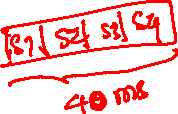 S1 | S2 | S3 | S4
40 ms